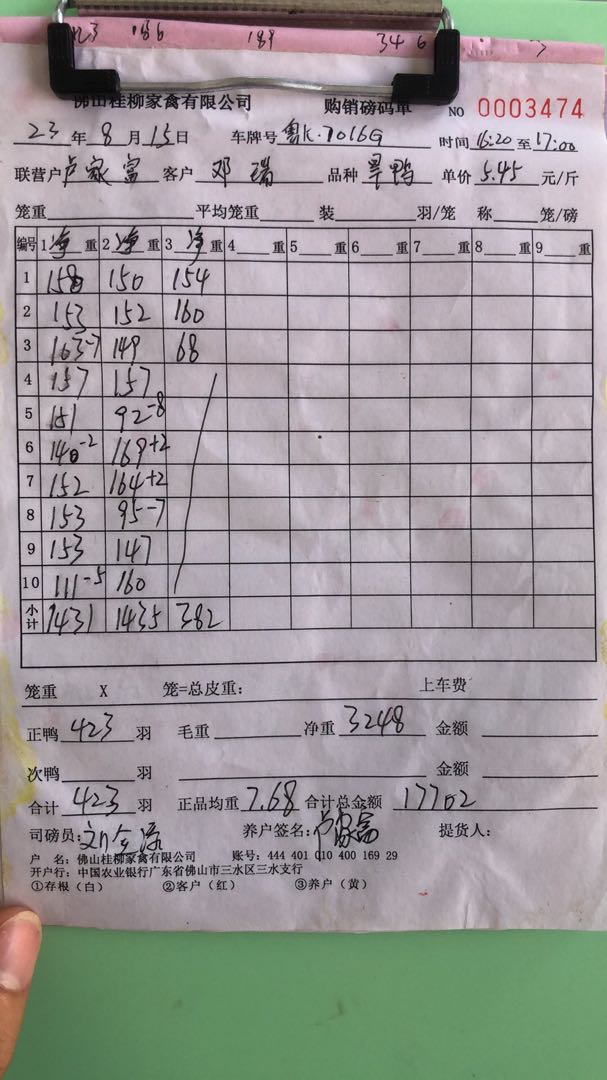 186 189 34 6
佛山桂柳家禽有限公司 购销磅码单 NO 0003474
23 年 8 月 15 日 车牌号 粤K·7016G 时间 16:20 至 17:00
联营户 卢家富 客户 邓瑞 品种 旱鸭 单价 5.45 元/斤
笼重 平均笼重 装 羽/笼 称 笼/磅
编号 1 净 重 2 净 重 3 净 重 4 重 5 重 6 重 7 重 8 重 9 重
1 158 150 154
2 153 152 160
3 163-7 149 68
4 157 157
5 151 92-8
6 140-2 169+2
7 152 164+2
8 153 95-7
9 153 147
10 111-5 160
小计 1431 1435 382
笼重 X 笼=总皮重: 上车费
正鸭 423 羽 毛重 净重 3248 金额
次鸭 羽 金额
合计 423 羽 正品均重 7.68 合计总金额 17702
司磅员: 养户签名: 卢家富 提货人:
户 名: 佛山桂柳家禽有限公司 账号: 444 401 010 400 169 29
开户行: 中国农业银行广东省佛山市三水区三水支行
①存根(白) ②客户(红) ③养户(黄)